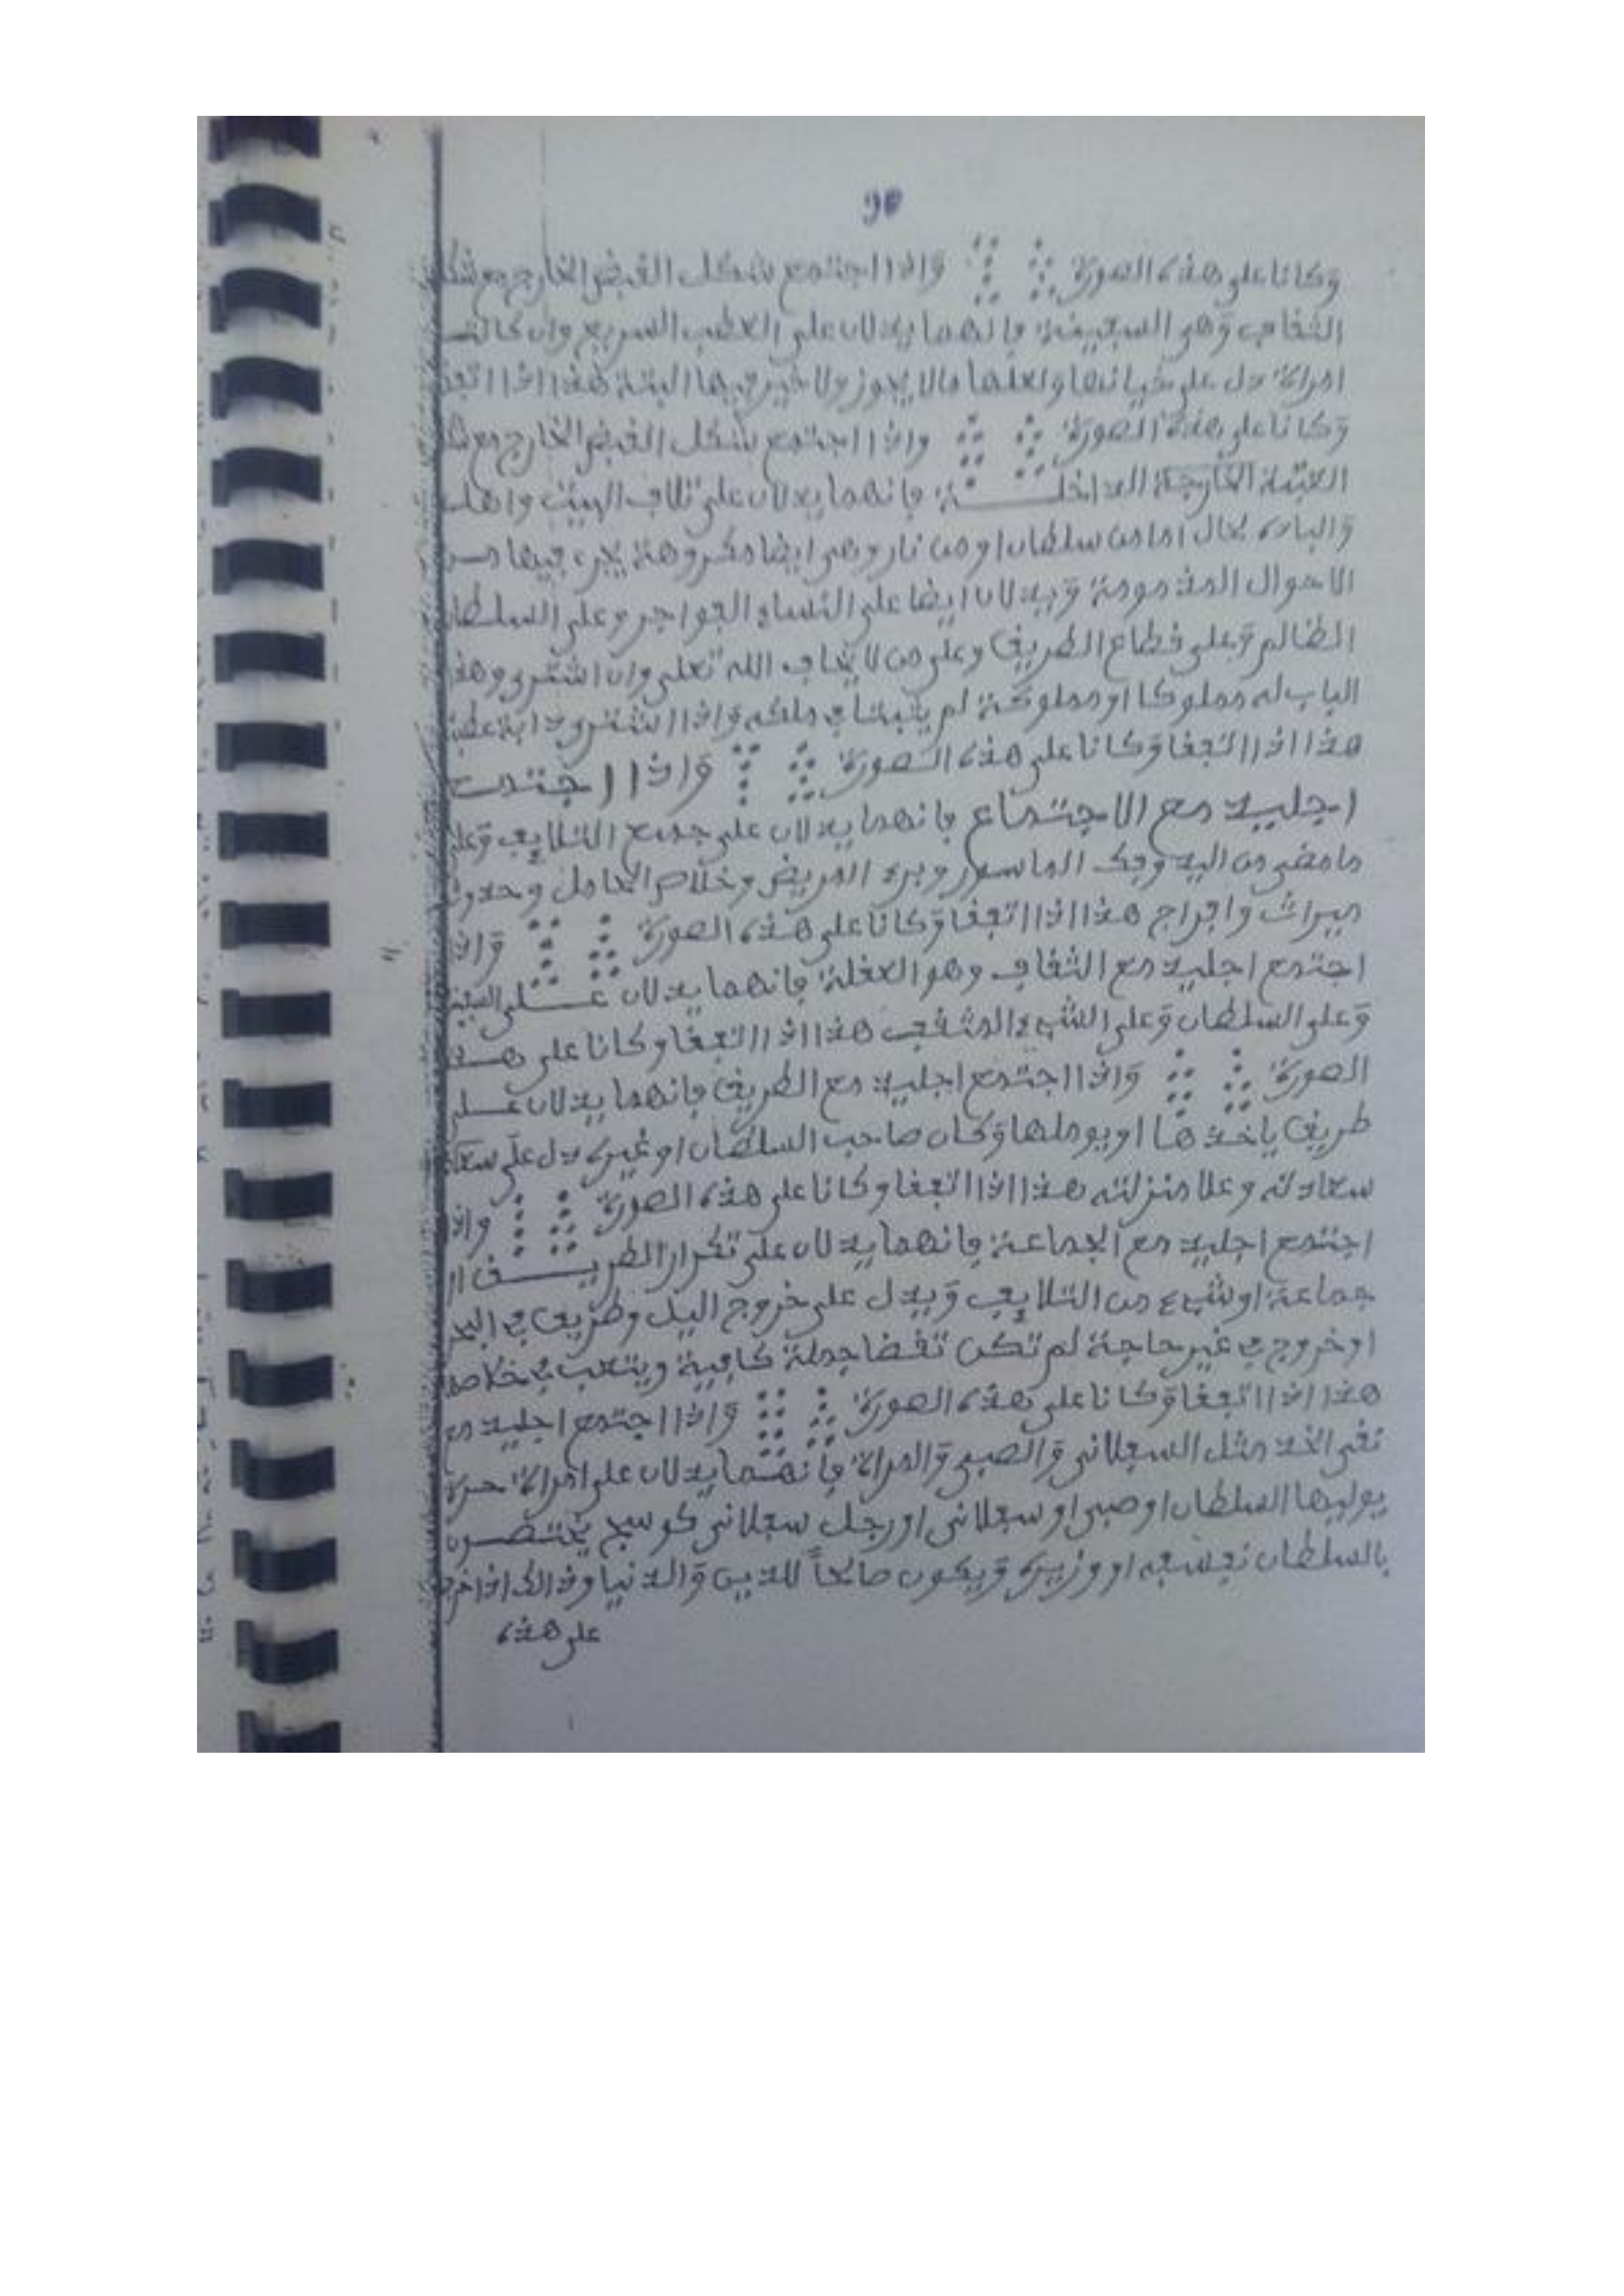 وكانا على هذه الصورة واذا اجتمع شكل القبض الخارج مع شكل
الثقاف وهو السجينة فإنهما يدلان على الغضب السريع وان كانت
امراة دل على خيانتها وفعلها ما لا يجوز ولا خير فيها البتة هذا اذا اتفقا
وكانا على هذه الصورة واذا اجتمع شكل القبض الخارج مع شكل
العتبة الخارجة الداخلة فإنهما يدلان على تلاف البيت واهله
اما من سلطان او من نار وهي ايضا مكروهة يجري فيها من
الاحوال المذمومة ويدلان ايضا على النساء الفواجر وعلى السلطان
الظالم وعلى قطاع الطريق وعلى من لا يخاف الله تعلى وان اشترى وهذا
الباب له مملوكا او مملوكة لم يثبتا في ملكه واذا اشترى دابة
هذا اذا اتفقا وكانا على هذه الصورة واذا اجتمع
اجليد مع الاجتماع فإنهما يدلان على جميع التلايف وعلى
ما مضى من اليد وفك الماسور وبرء المريض وخلاص الحامل وحدوث
ميراث وافراج هذا اذا اتفقا وكانا على هذه الصورة واذا
اجتمع اجليد مع الثقاف وهو العقلة فإنهما يدلان على السجن
وعلى السلطان وعلى الشيء المثقف هذا اذا اتفقا وكانا على هذه
الصورة واذا اجتمع اجليد مع الطريق فإنهما يدلان على
طريق ياخذها او يوملها وكان صاحب السلطان او غيره دل على
سعادته وعلا منزلته هذا اذا اتفقا وكانا على هذه الصورة واذا
اجتمع اجليد مع الجماعة فإنهما يدلان على تكرار الطريق او
جماعة او شيء من التلايف ويدل على خروج اليل وطريق في البحر
او خروج في غير حاجة لم تكن تقضا جملة كافية ويتعب في خلاصه
هذا اذا اتفقا وكانا على هذه الصورة واذا اجتمع اجليد مع
نقي الخد مثل السعلاني والصبي والمراة فإنهما يدلان على امراة حرة
يوليها السلطان او صبي او سعلاني او رجل سعلاني كوسج يختصون
بالسلطان نفسه او وزيره ويكون صالحاً للدين والدنيا وذالك اذا خرجا
على هذه